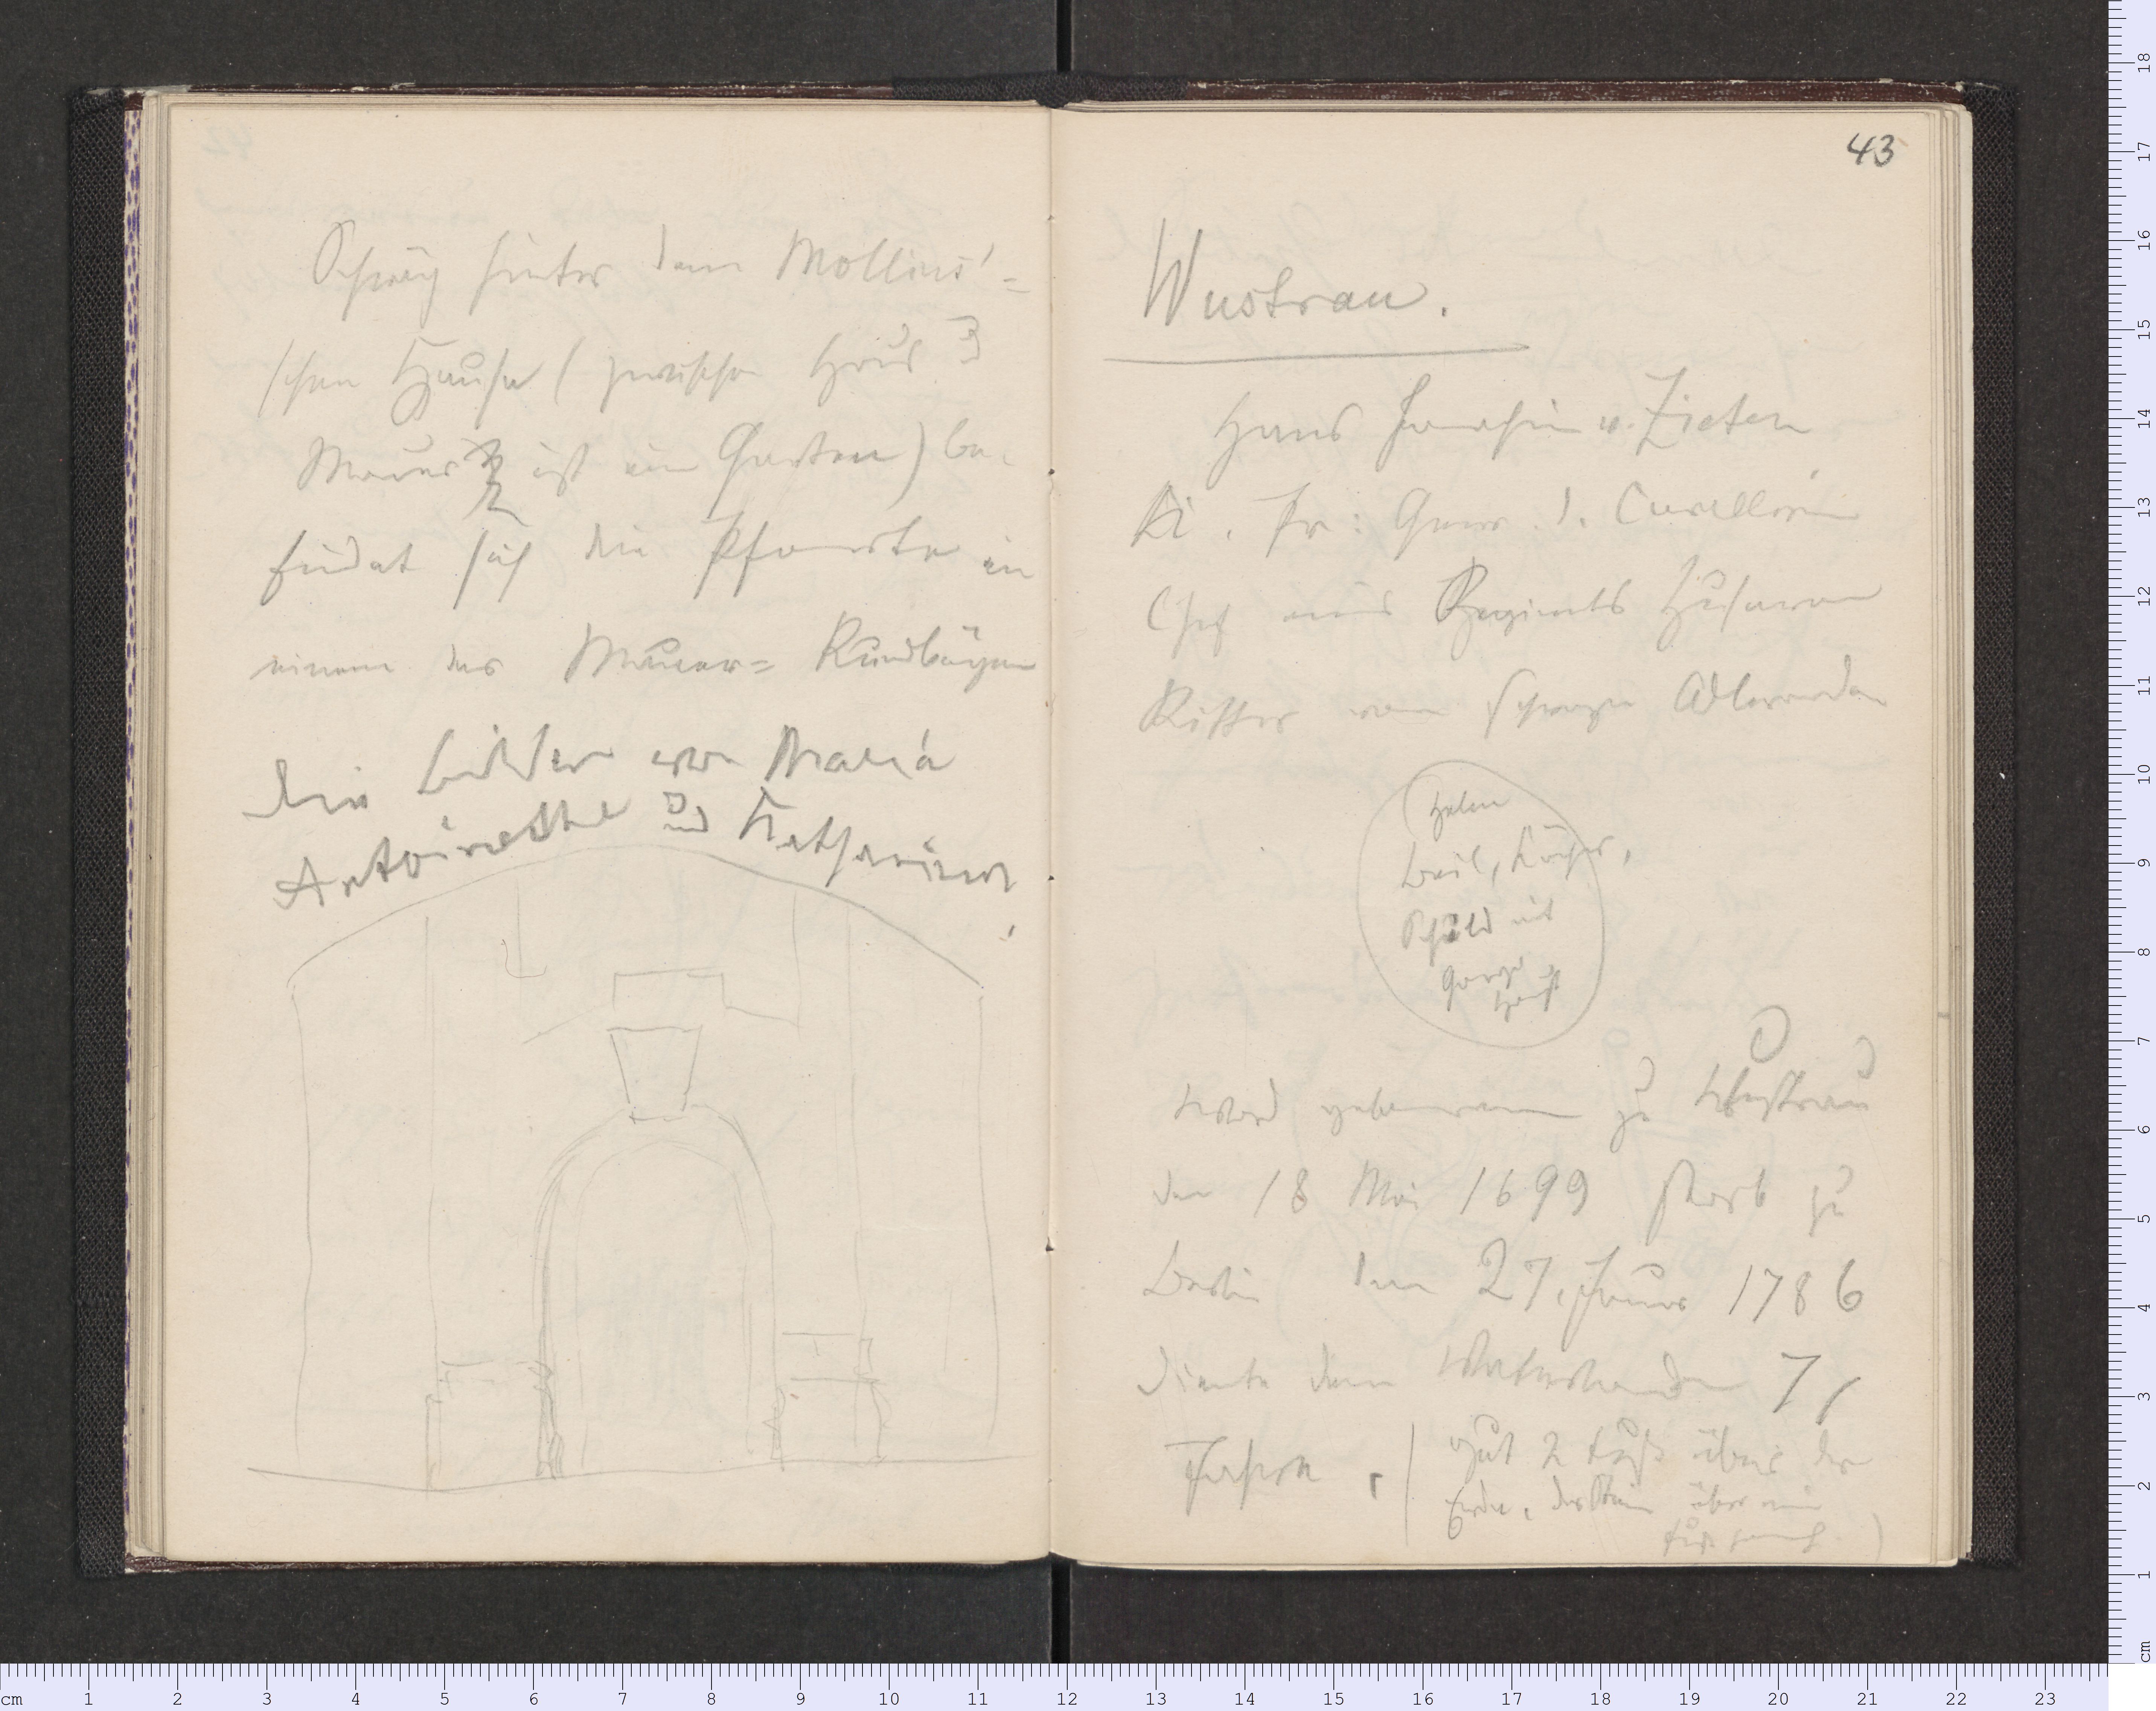 Schräg hinter dem Mollius'=
schen Hause (zwischen Haus u
Mauer ist ein Garten) be-
findet sich die Pfoorte in
einem der Mauer= Rundbögen
Die Bilder von Maria
Antoinette und Katharina
43
Wustrau.
Hans Joachim v. Zieten
Kö. Pr: Gener. d. Cavallerie
Chef eines Regiments Husaren
Ritter vom schwarzen Adlerorden
Helm
Beil, Köcher,
Schild mit
Gorgo
Haupt
Ward geboren zu Wustrau
den 18 Mai 1699 starb zu
Berlin den 27. Januar 1786
diente dem Vaterlande 71
Jahre. (gut 2 Fuß über der
Erde, der Stein über ein
Fuß hoch)